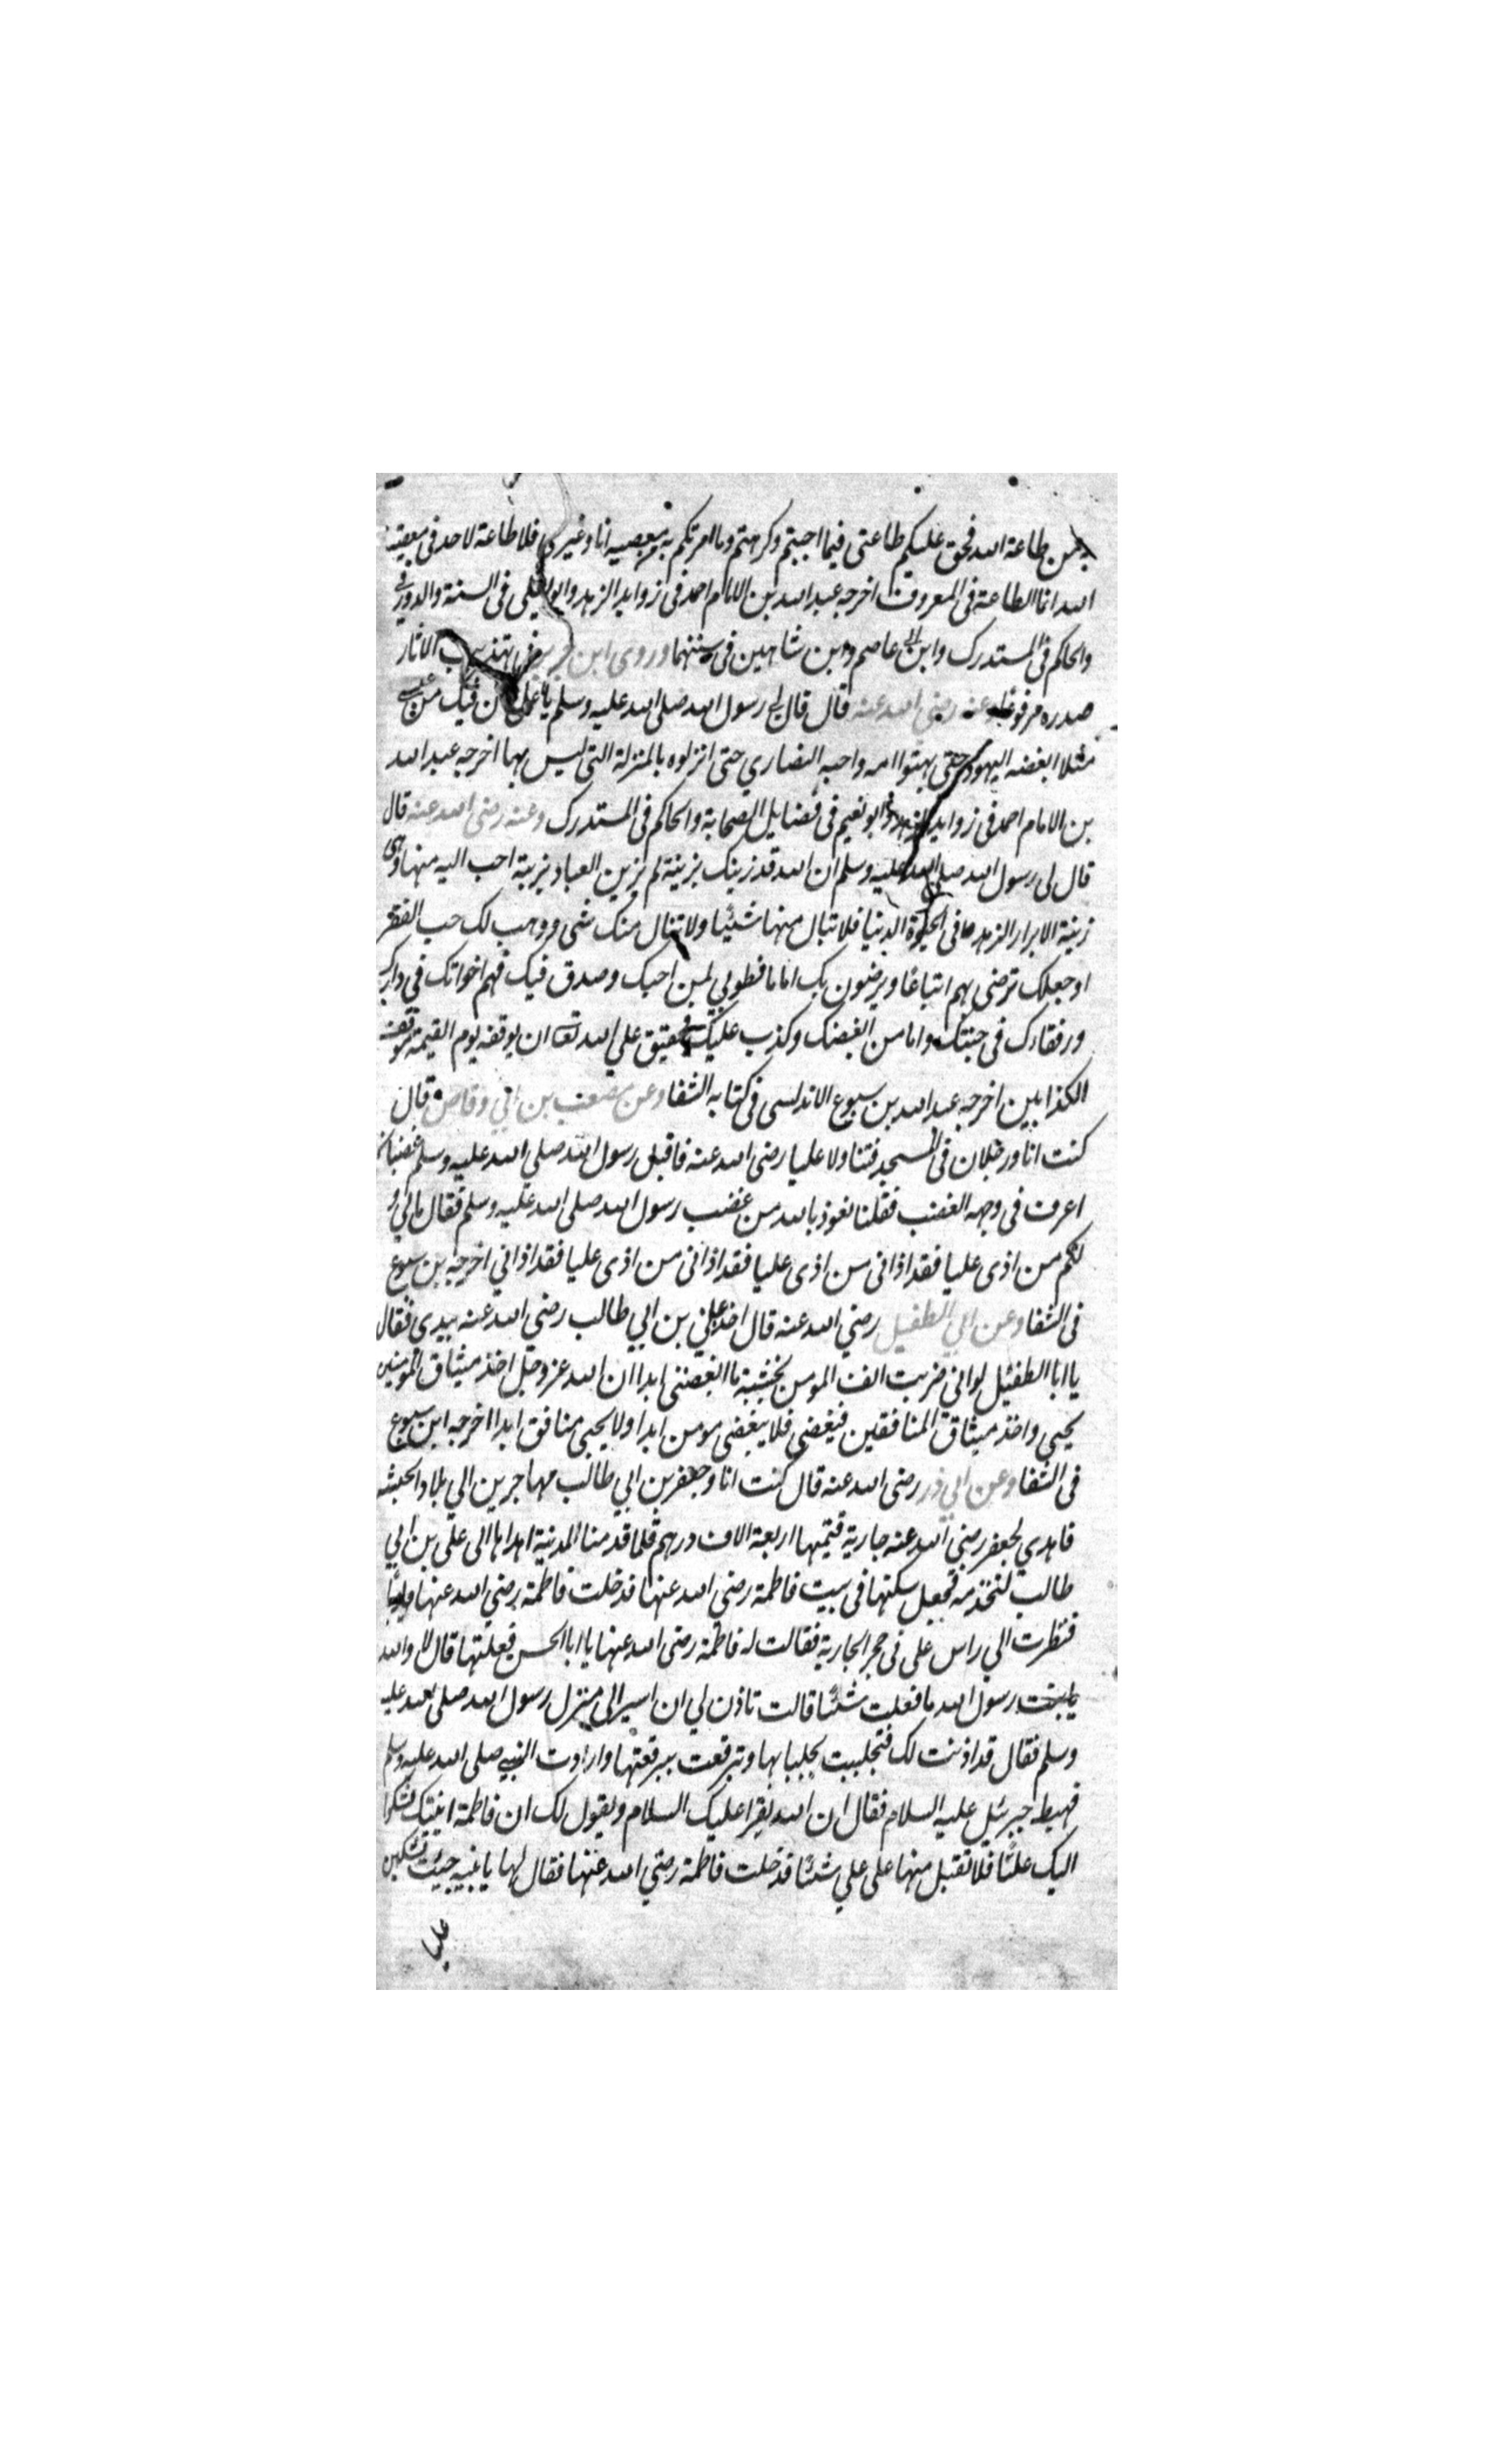 من طاعة الله فحق عليكم طاعتى فيما احببتم وكرهتم وما امرتكم به بمعصيه انا وغيرى فلا طاعة لاحد فى معصية
الله انما الطاعة فى المعروف اخرجه عبد الله بن الامام احمد فى زوايد الزهد وابو يعلى فى السنة والدورقى
والحاكم فى المستدرك وابن ابى عاصم وابن شاهين فى سننهما وروى ابن جرير فى تهذيب الاثار
صدره مرفوعا وعنه رضى الله عنه قال قال لى رسول الله صلى الله عليه وسلم يا على ان فيك من عيسى
مثلا ابغضه اليهود حتى بهتوا امه واحبه النصاري حتى انزلوه بالمنزلة التى ليس بها اخرجه عبد الله
بن الامام احمد فى زوايد الزهد وابو نعيم فى فضايل الصحابة والحاكم فى المستدرك وعنه رضى الله عنه قال
قال لى رسول الله صلى الله عليه وسلم ان الله قد زينك بزينة لم يزين العباد بزينة احب اليه منها وهى
زينة الابرار الزهد فى الحيوة الدنيا فلا تنال منها شيئا ولا تنال منك شى ووهب لك حب الفقر
اوجعلك ترضى بهم اتباعا ويرضون بك اماما فطوبي لمن احبك وصدق فيك فهم اخوانك في دارك
ورفقاءك فى جنتك واما من ابغضك وكذب عليك فحقيق علي الله تعا ان يوقفه يوم القيمة موقف
الكذابين اخرجه عبد الله بن سبوع الاندلسى فى كتابه الشفا وعن مصعب بن ابي وقاص قال
كنت انا ورجلان فى المسجد فتناولا عليا رضى الله عنه فاقبل رسول الله صلي الله عليه وسلم غضبانا
اعرف فى وجهه الغضب فقلنا نعوذ بالله من غضب رسول الله صلى الله عليه وسلم فقال مالي و
لكم من اذى عليا فقد اذانى من اذى عليا فقد اذانى من اذى عليا فقد اذاني اخرجه بن سبوع
فى الشفا وعن ابي الطفيل رضي الله عنه قال اخذ علي بن ابي طالب رضي الله عنه بيدي فقال
يا ابا الطفيل لو انى ضربت انف المومن بخشبة ما ابغضنى ابدا ان الله عز وجل اخذ ميثاق المومنين
بحبي واخذ ميثاق المنافقين فبغضى فلا يبغضى مومن ابدا ولا يحبى منافق ابدا اخرجه ابن سبوع
فى الشفا وعن ابي ذر رضى الله عنه قال كنت انا وجعفر بن ابي طالب مهاجرين الي بلاد الحبشه
فاهدي لجعفر رضي الله عنه جارية قيمتها اربعة الاف درهم فلما قدمنا المدنية اهداها الى على بن ابي
طالب لتخدمه فجعل سكنها فى بيت فاطمة رضي الله عنها فدخلت فاطمة رضي الله عنها
فنظرت الي راس على فى حجر الجارية فقالت له فاطمة رضى الله عنها يا ابا الحسن فعلتها قال لا والله
يا بنت رسول الله ما فعلت شئا قالت تاذن لي ان اسير الى منزل رسول الله صلى الله عليه
وسلم فقال قد اذنت لك فتجلببت بجلبابها وتبرقعت ببرقعتها وارادت النبي صلى الله عليه وسلم
فهبط جبرئيل عليه السلام فقال ان الله يقرا عليك السلام ويقول لك ان فاطمة اتيتك تشكوا
اليك عليا فلا تقبل منها على علي شئا فدخلت فاطمة رضي الله عنها فقال لها يا بنيه جيئت تشكين
عليا